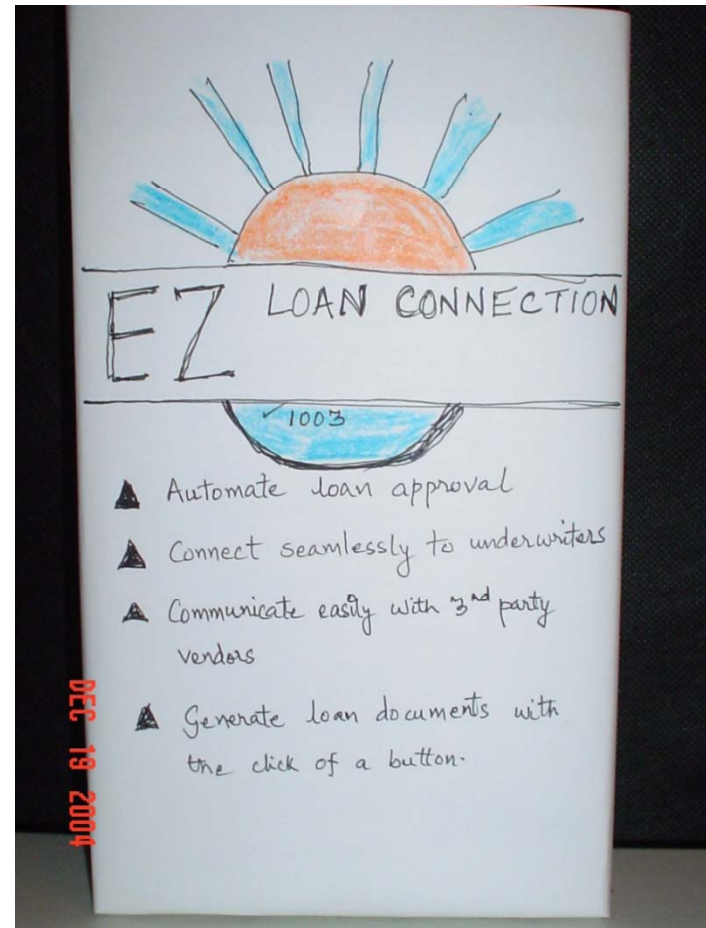 EZ LOAN CONNECTION
✓1003
▲ Automate loan approval
▲ Connect seamlessly to underwriters
▲ Communicate easily with 3nd party
vendors
▲ Generate loan documents with
the click of a button.
DEC 19 2004